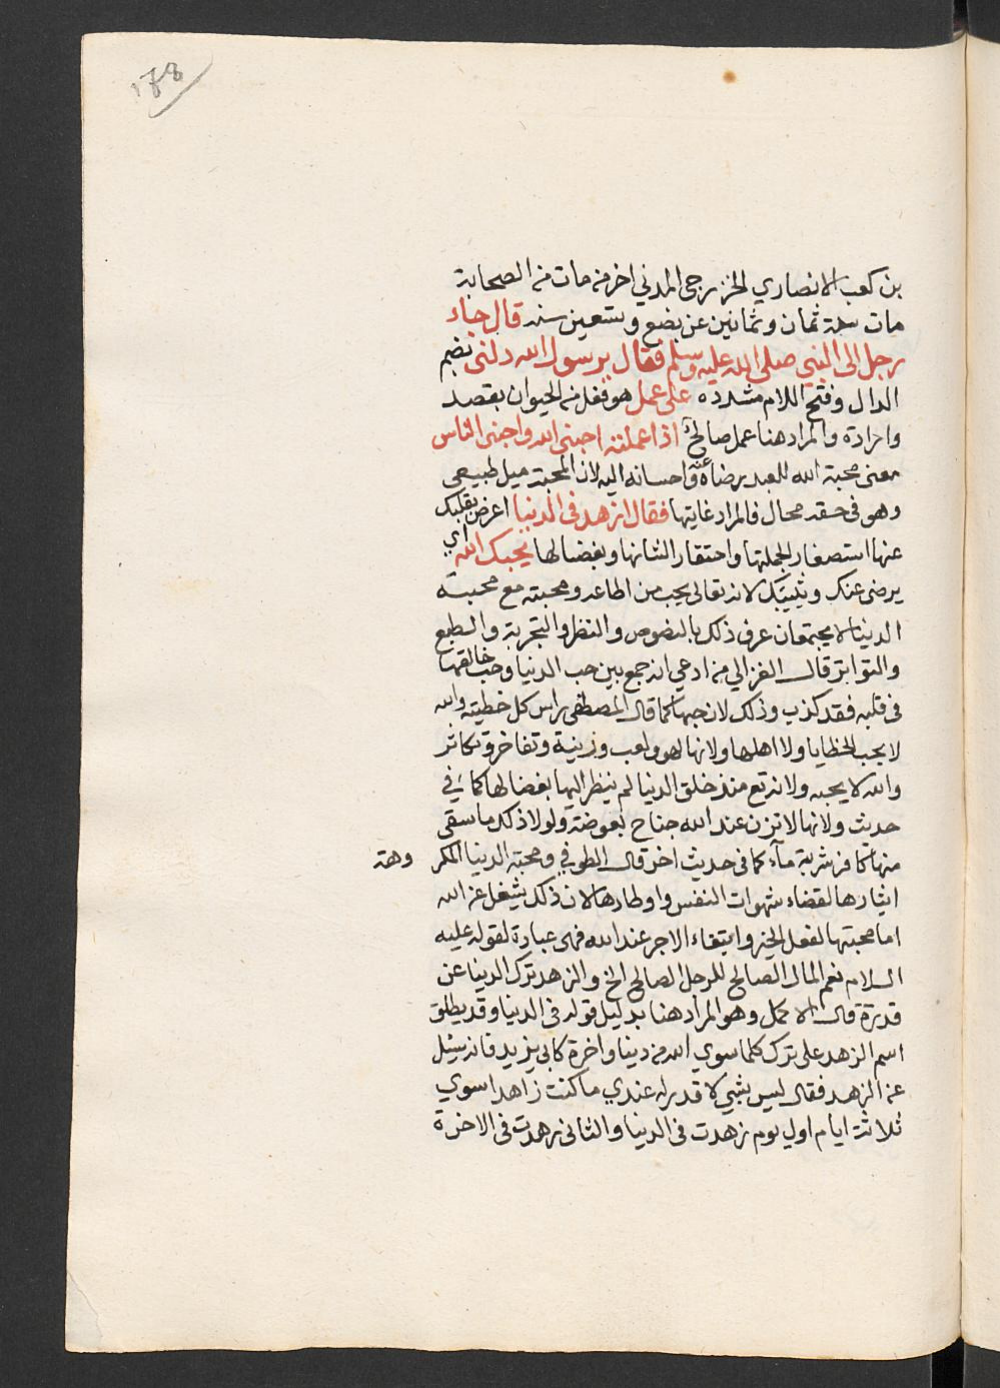 178
بن كعب الانصاري الخزرجي المدني اخر من مات من الصحابة
مات سنة ثمان وثمانين عن بضع وتسعين سنه قال جاء
رجل الى النبي صلى الله عليه وسلم فقال يرسول الله دلني بضم
الدال وفتح اللام مشدده على عمل هو فعل من الحيوان بقصد
وارادة والمراد هنا عمل صالح اذا عملته احبني الله واحبني الناس
معنى محبة الله للعبد رضاه عنه واحسانه اليه لان المحبة ميل طبيعي
وهو في حقه محال فالمراد غايتها فقال ازهد في الدنيا اعرض بقلبك
عنها استصغارا لجملتها واحتقارا لشانها وبغضا لها يحبك الله اي
يرضى عنك ويثيبك لانه تعالى يحب من اطاعه ومحبته مع محبة
الدنيا لا يجتمعان عرف ذلك بالنصوص والنظر والتجربة والطبع
والتواتر قال الغزالي من ادعي انه جمع بين حب الدنيا وحب خالقها
في قلبه فقد كذب وذلك لان حبها كما قال المصطفى راس كل خطيئة والله
لا يحب الخطايا ولا اهلها ولانها لهو ولعب وزينة وتفاخر وتكاثر
والله لا يحبه ولانه تع منذ خلق الدنيا لم ينظر اليها بغضا لها كما في
حديث ولانها لا تزن عند الله جناح بعوضة ولولا ذلك ما سقى
منها كافر شربة مآء كما في حديث اخر قال الطوفي ومحبة الدنيا المكر وهة
ايثارها لقضاء شهوات النفس واوطارها لان ذلك يشغل عن الله
اما محبتها لفعل الخير وابتغاء الاجر عند الله فهى عبادة لقوله عليه
السلام نعم المال الصالح للرجل الصالح الخ والزهد ترك الدنيا عن
قدرة قال الاكمل وهو المراد هنا بدليل قوله في الدنيا وقد يطلق
اسم الزهد على ترك كلما سوي الله من دنيا واخرة كابي يزيد فانه سئل
عن الزهد فقال ليس بشي لا قدر له عندي ما كنت زاهدا سوي
ثلاثة ايام اول يوم زهدت في الدنيا والثاني زهدت في الاخرة